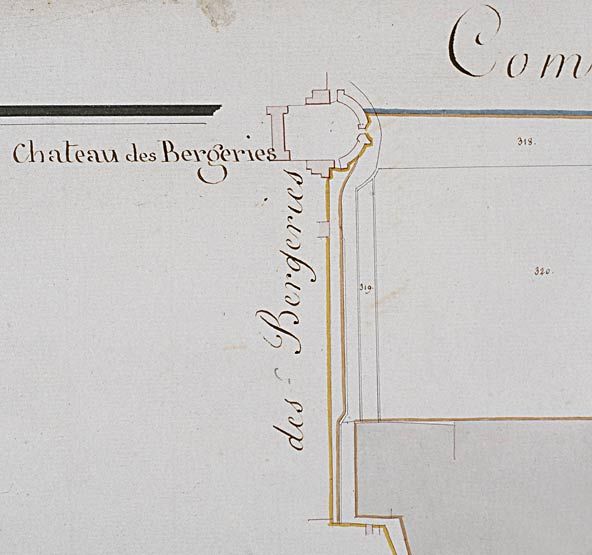 Com
318.
Chateau des Bergeries
320.
319.
des Bergeries